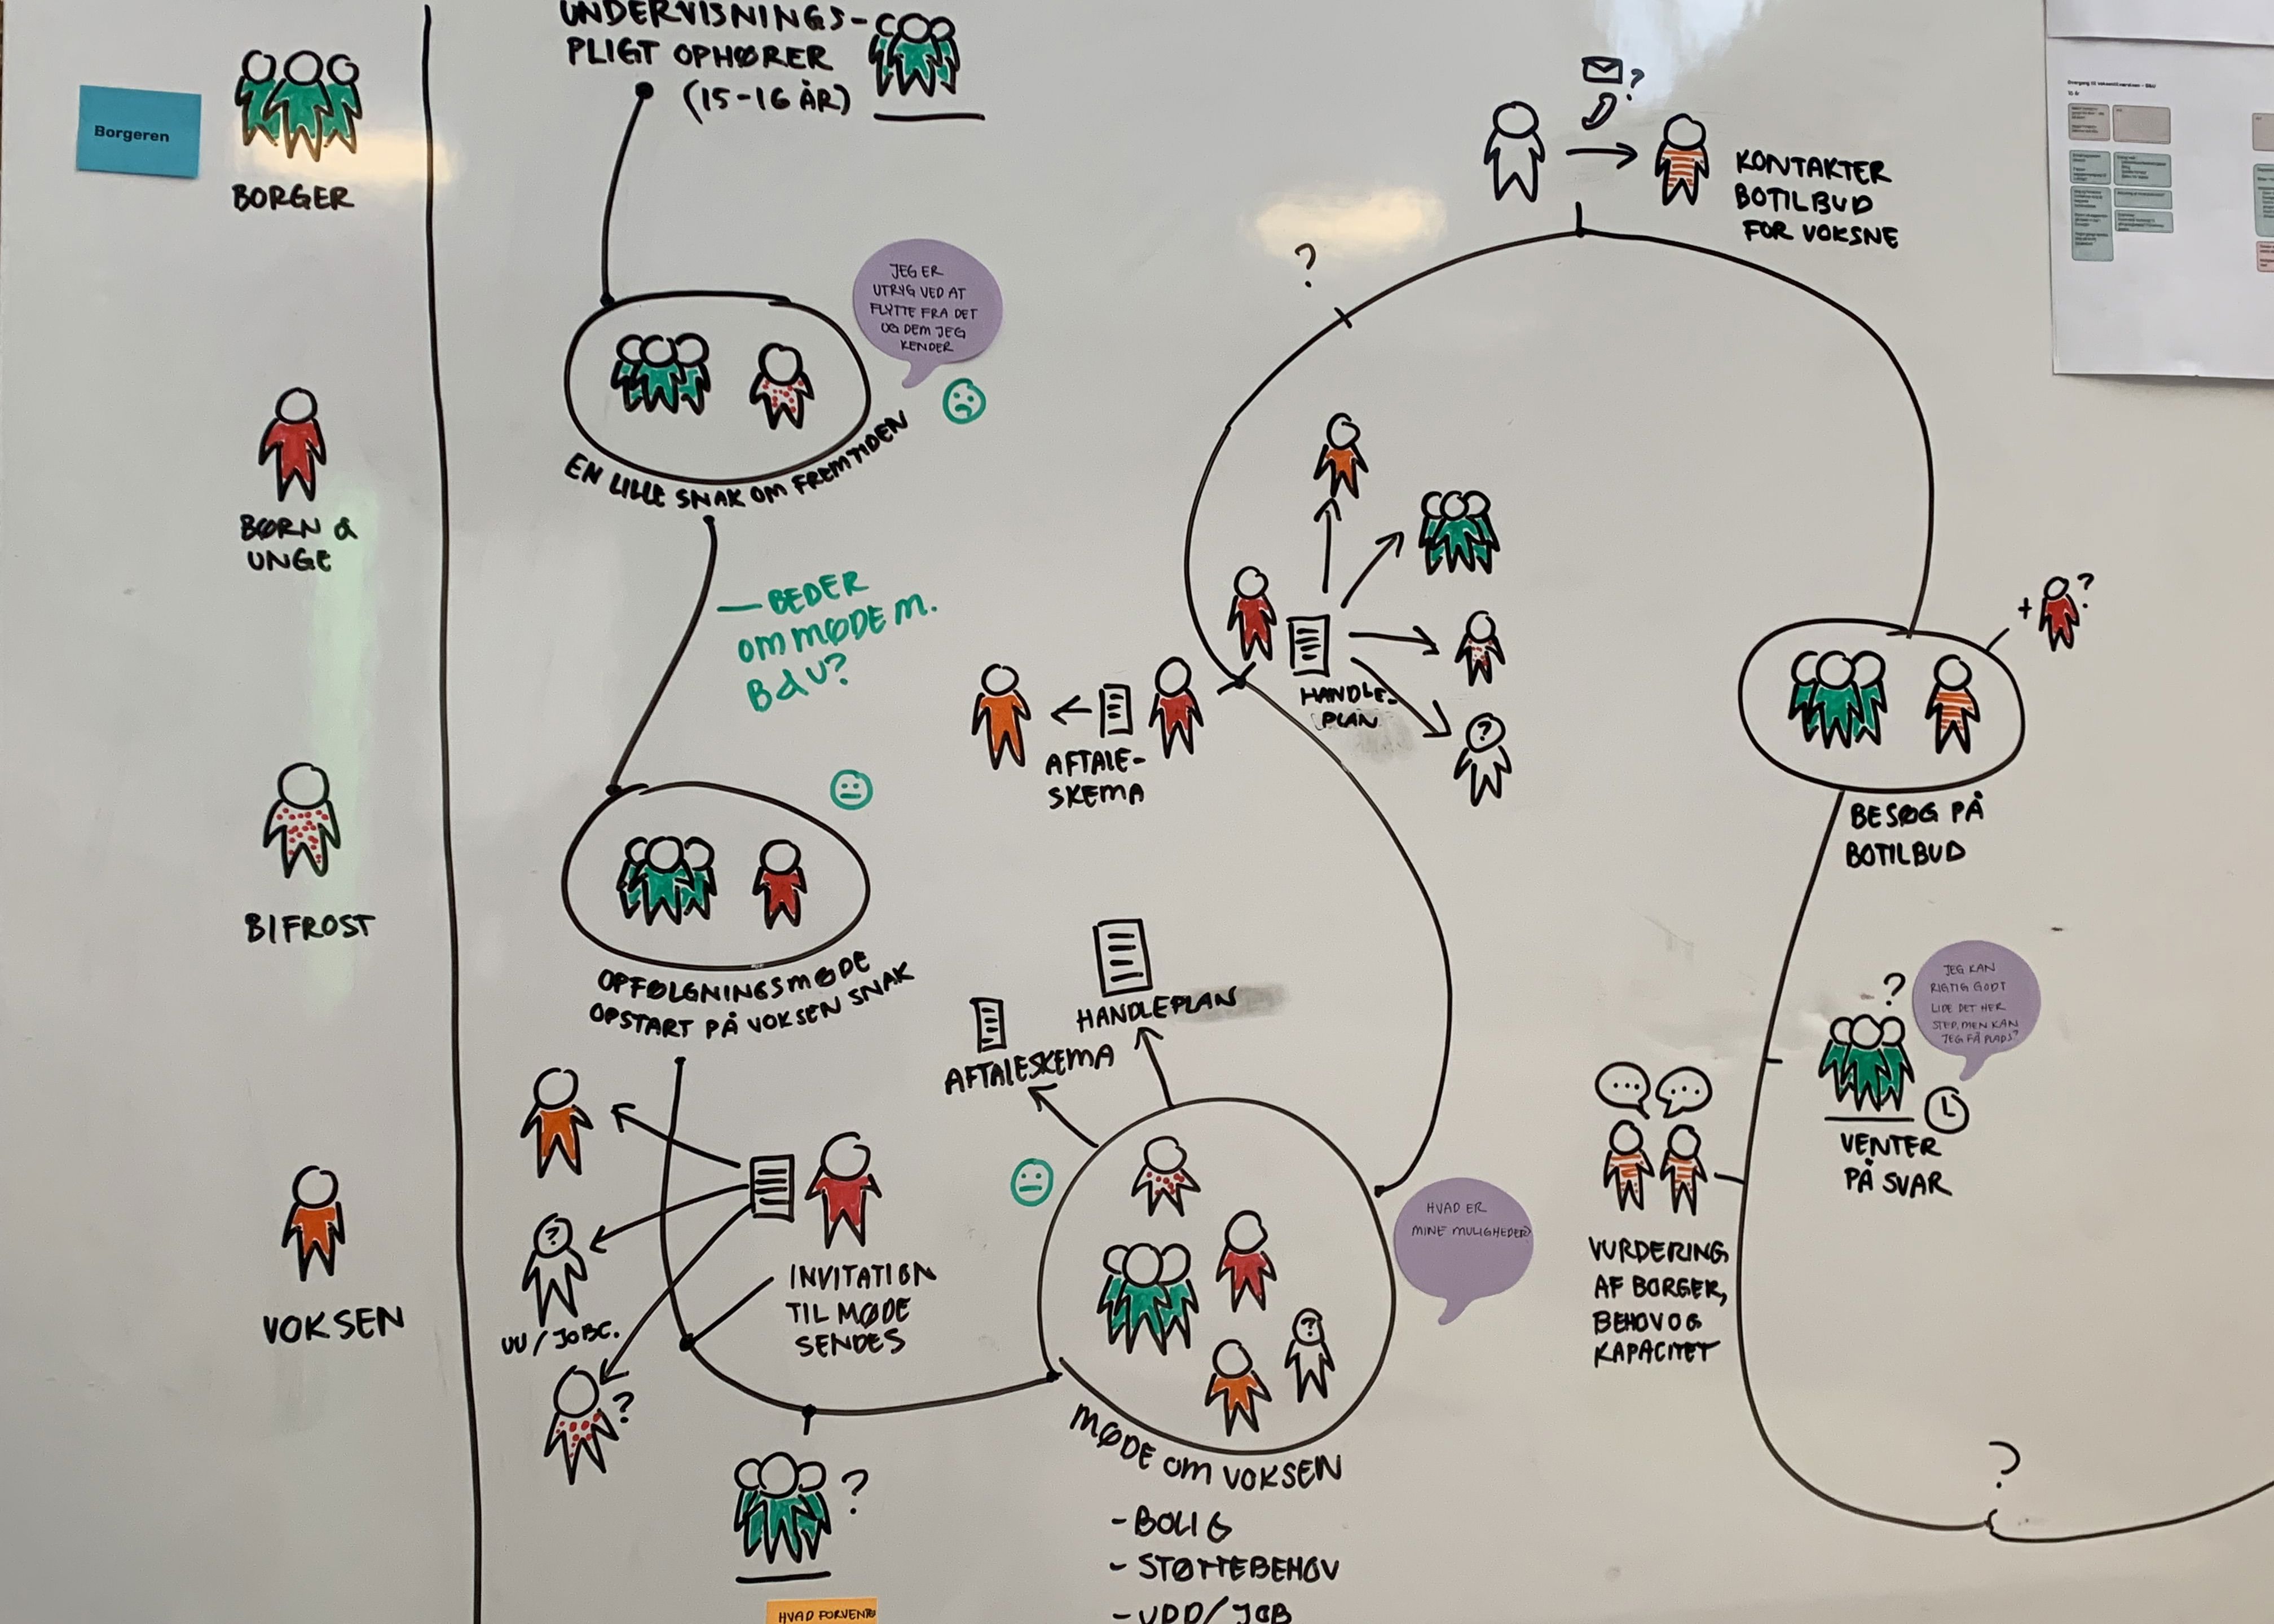 Borgeren
BORGER
BØRN &
UNGE
BIFROST
VOKSEN
UNDERVISNINGS-
PLIGT OPHØRER
(15-16 ÅR)
JEG ER
UTRYG VED AT
FLYTTE FRA DET
OG DEM JEG
KENDER
EN LILLE SNAK OM FREMTIDEN
— BEDER
OM MØDE M.
B&U?
OPFØLGNINGSMØDE
OPSTART PÅ VOKSEN SNAK
?
UU/JOBC.
?
INVITATION
TIL MØDE
SENDES
?
HVAD FORVENTE
AFTALESKEMA
HANDLEPLAN
?
MØDE OM VOKSEN
- BOLIG
- STØTTEBEHOV
- UDD/JOB
HVAD ER
MINE MULIGHEDER?
AFTALE-
SKEMA
HANDLE-
PLAN
?
?
?
KONTAKTER
BOTILBUD
FOR VOKSNE
+ ?
BESØG PÅ
BOTILBUD
?
JEG KAN
RIGTIG GODT
LIDE DET HER
STED, MEN KAN
JEG FÅ PLADS?
VENTER
PÅ SVAR
VURDERING
AF BORGER,
BEHOV OG
KAPACITET
?